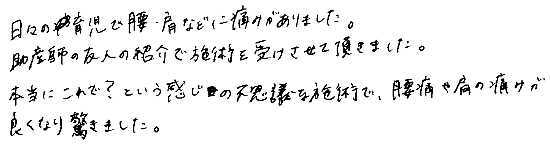 日々の育児で腰・肩などに痛みがありました。
助産師の友人の紹介で施術を受けさせて頂きました。
本当にこれで？という感じの不思議な施術で、腰痛や肩の痛みが
良くなり驚きました。